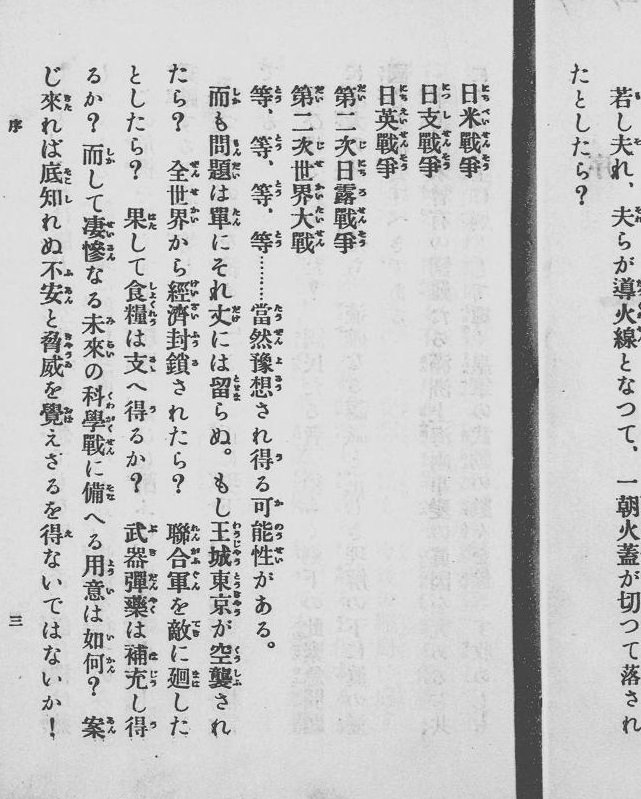 若し夫れ、夫らが導火線となつて、一朝火蓋が切つて落され
たとしたら？
日米戰爭
日支戰爭
日英戰爭
第二次日露戰爭
第二次世界大戰
等、等、等、等………當然豫想され得る可能性がある。
而も問題は單にそれ丈には留らぬ。もし王城東京が空襲され
たら？　全世界から經濟封鎖されたら？　聯合軍を敵に廻した
としたら？　果して食糧は支へ得るか？　武器彈藥は補充し得
るか？　而して凄慘なる未來の科學戰に備へる用意は如何？　案
じ來れば底知れぬ不安と脅威を覺えざるを得ないではないか！
序
三